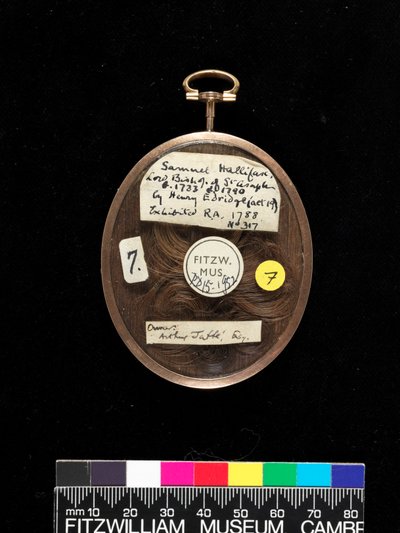 Samuel Hallifax,
Lord Bishop of St Asaph
b. 1733 d 1790
by Henry Edridge (aet 19)
Exhibited R.A. 1788
No 317
7.
FITZW.
MUS.
PD 15-1952
7
Owner:
Arthur Jaffé, Esq.
mm 10 20 30 40 50 60 70 80
FITZWILLIAM MUSEUM CAMBR